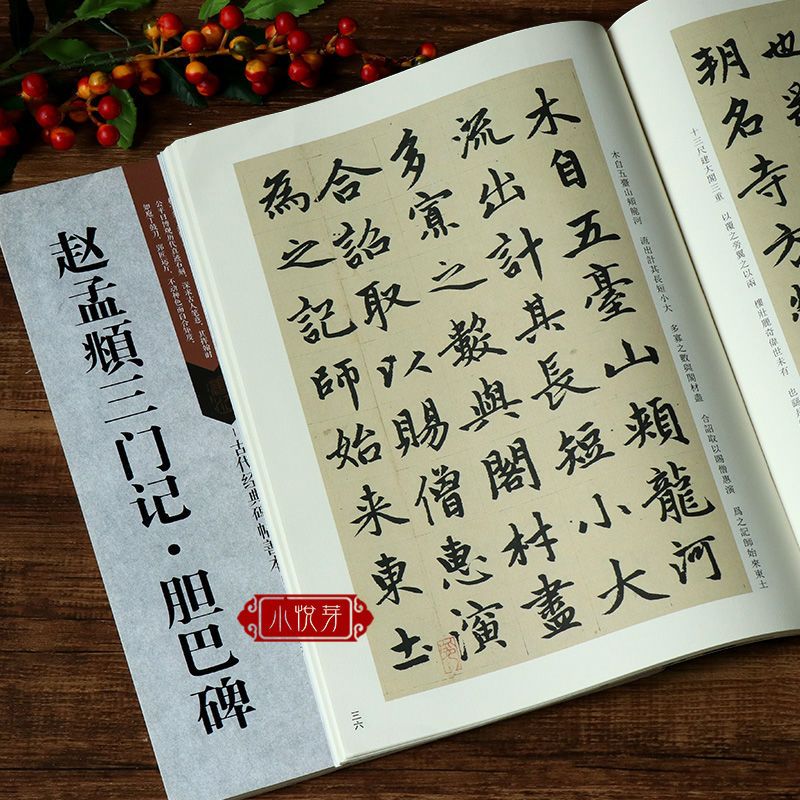 也
朝名寺方
十三尺建大閣三重 以覆之旁翼之以兩 樓壯麗奇偉世未有 也
木自五臺山頰龍河
流出計其長短小大
多寡之數與閣材盡
合詔取以賜僧惠演
為之記師始来東土
木自五臺山頰龍河 流出計其長短小大 多寡之數與閣材盡 合詔取以賜僧惠演 爲之記師始來東土
三六
古代经典碑帖善本
赵孟頫三门记·胆巴碑
小悦芽